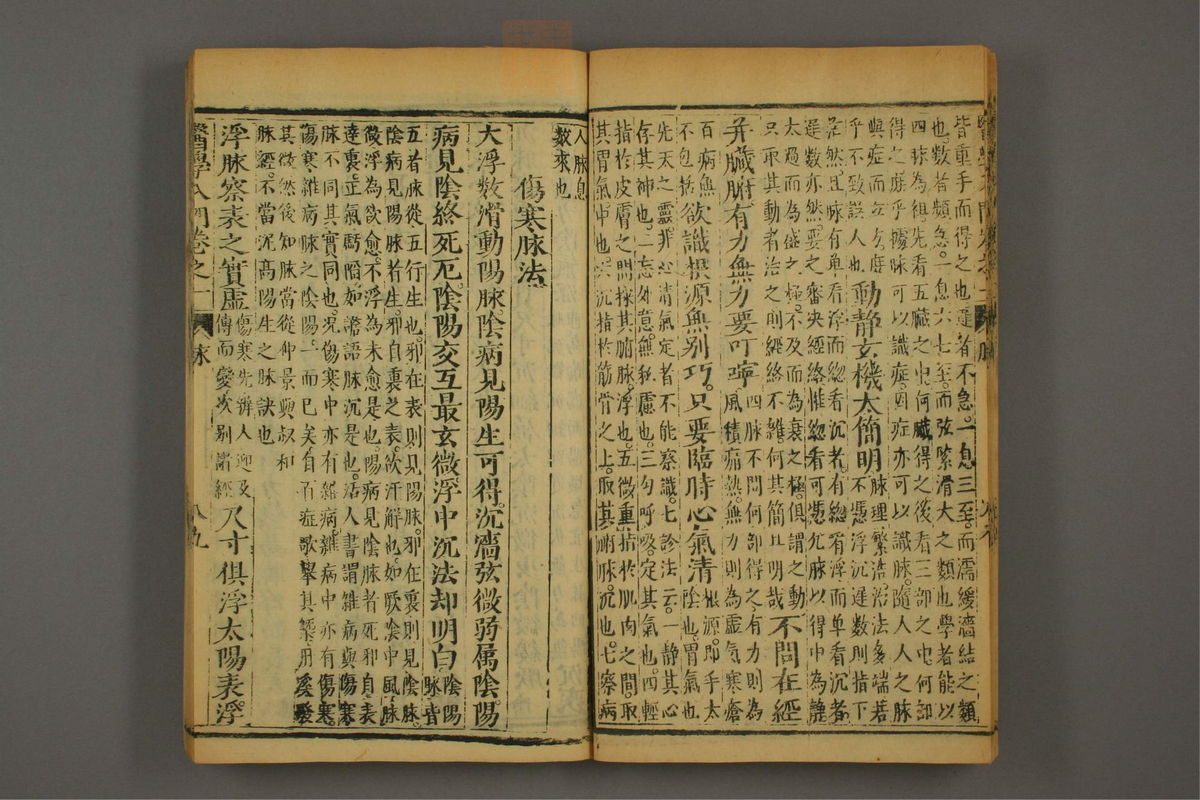 皆重手而得之也遲者不急一息三至而濡緩濇結之類
也數者頻急一息六七至而弦緊滑大之類也學者能以
四脉為祖先看五臟之中何臟得之後看三部之中何部
得之庶乎據脉可以識症因症亦可以識脉隨人人之脉
與症而立方庶
乎不致誤人也
動靜玄機太簡明
脉理繁浩治法多端若
不憑浮沉遲數則指下
茫然且脉有单看浮而緫看沉者有緫看浮而单看沉者
遲數亦然要之審决經絡惟緫看可憑凢脉以得中為静
太過而為盛之極不及而為衰之極俱謂之動
只取其動者治之則經絡不雜何其簡且明哉
不問在經
并臟腑有力無力要叮嚀
四脉不問何部得之有力則為
風積痛熱無力則為虛氣寒瘡
百病無
不包括
欲識根源無别巧只要臨時心氣清
根源即手太
陰也胃氣也
先天之靈非心清氣定者不能察識七診法云一静其心
存其神也二忘外意無私慮也三勻呼吸定其氣也四輕
指於皮膚之間探其腑脉浮也五微重指於肌肉之間取
其胃氣中也六沉指於筋骨之上取其臟脉沉也七察病
人脉息
數來也
傷寒脉法
大浮數滑動陽脉陰病見陽生可得沉濇弦微弱属陰陽
病見陰終死厄陰陽交互最玄微浮中沉法却明白
陰陽
脉皆
五者脉從五行生也邪在表則見陽脉邪在裏則見陰脉
陰病見陽脉者生邪自裏之表欲汗解也如厥陰中風脉
微浮為欲愈不浮為未愈是也陽病見陰脉者死邪自表
逹裏正氣虧陷如譫語脉沉是也活人書謂雜病與傷寒
脉不同其實同也况傷寒中亦有雜病雜病中亦有傷寒
傷寒雜病脉之陰陽一而已矣自百症歌舉其槩用奚疑
其微然後知脉當從仲景與叔和
脉經不當沉高陽生之脉訣也
浮脉察表之實虛
傷寒先辨人迎及
傳而變次别諸經
尺寸俱浮太陽表浮
醫學入門卷之一
脉
八九